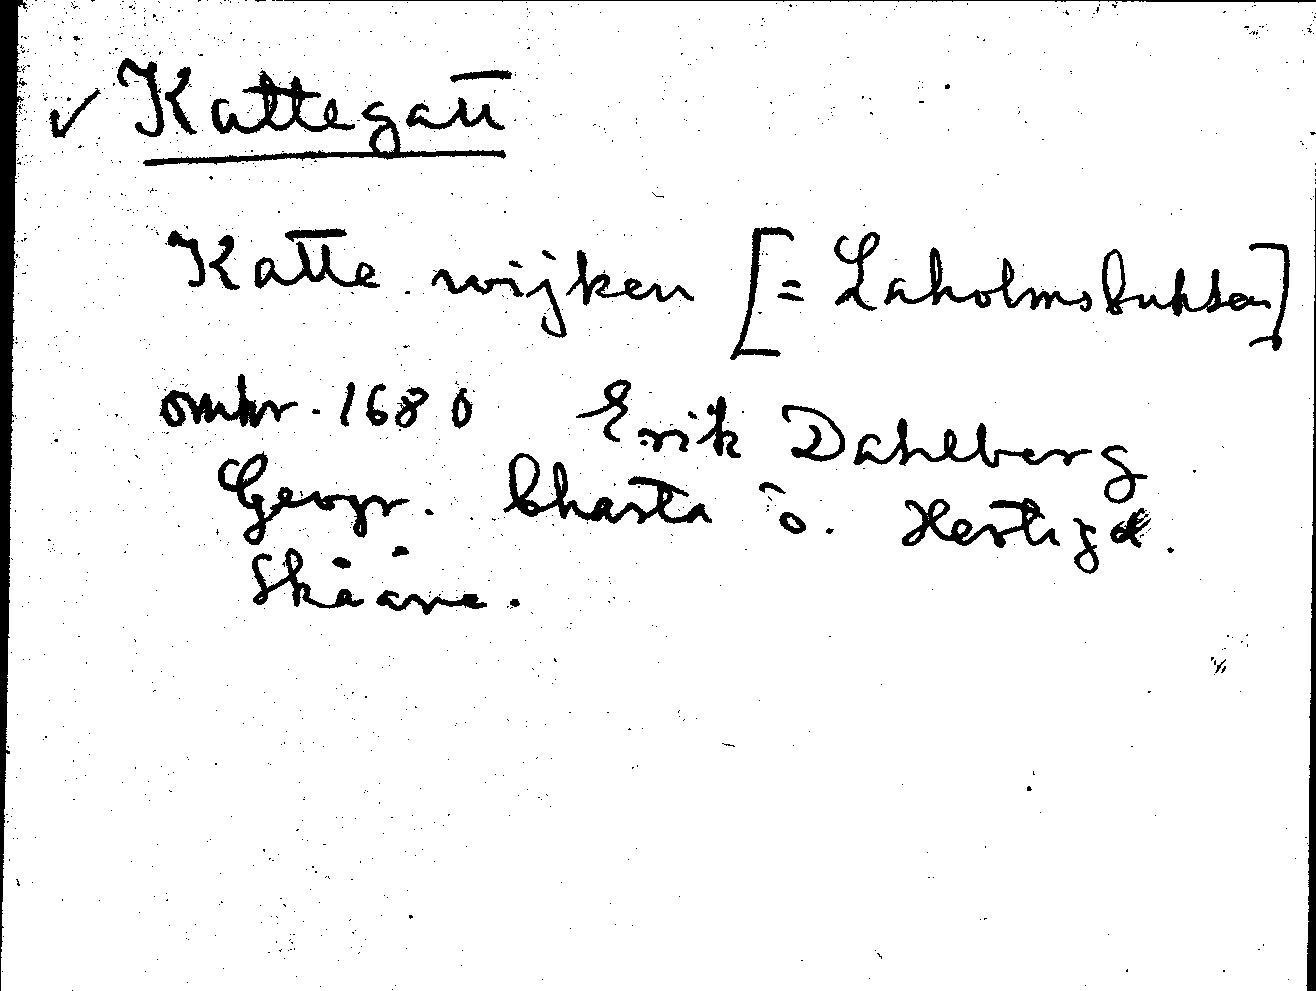 ✓ Kattegatt
Katte wijken [= Laholmsbukten]
omkr. 1680 Erik Dahlberg
Geogr. Charta ö. Hertigd.
Skååne.